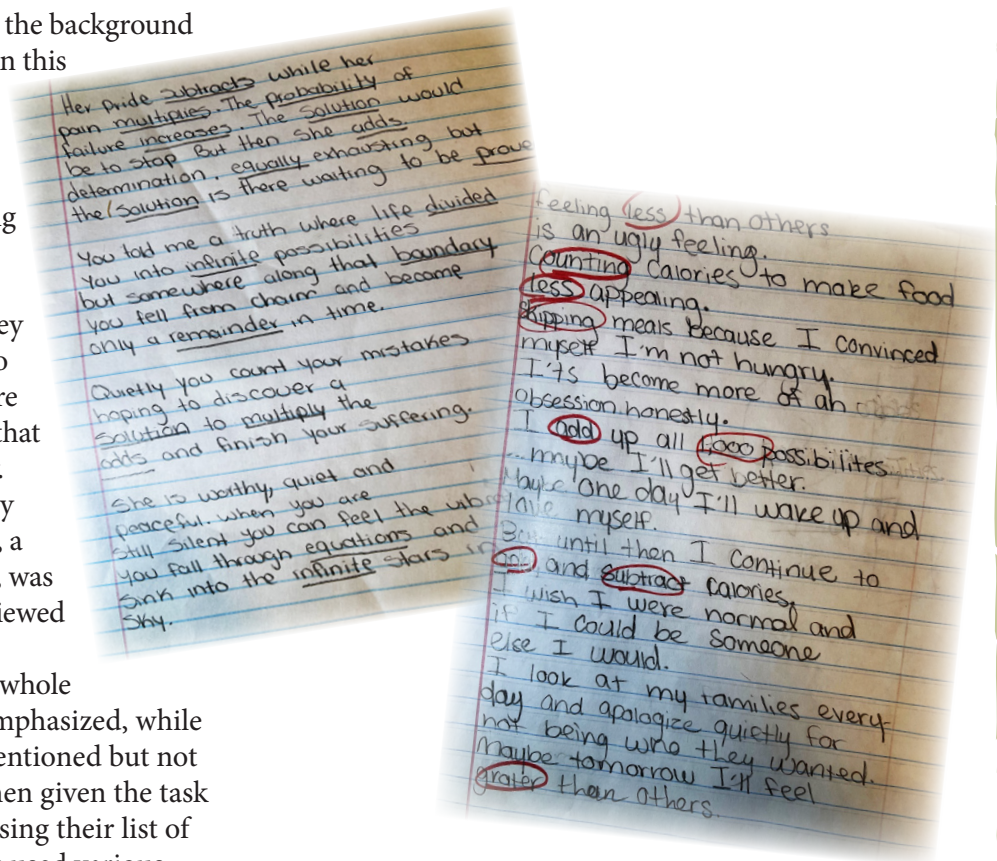 the background
n this
g
ey
o
re
that
y
, a
, was
iewed
whole
mphasized, while
entioned but not
hen given the task
sing their list of
used various
Her pride subtracts while her
pain multiplies. The probability of
failure increases. The solution would
be to stop. But then she adds
determination. equally exhausting but
the solution is there waiting to be prove
You told me a truth where life divided
you into infinite possibilities
but somewhere along that boundary
you fell from charm and became
only a remainder in time.
Quietly you count your mistakes
hoping to discover a
solution to multiply the
odds and finish your suffering.
She is worthy, quiet and
peaceful. When you are
still silent you can feel the
you fall through equations and
sink into the infinite stars in
sky.
feeling less than others
is an ugly feeling.
Counting calories to make food
less appealing.
skipping meals because I convinced
myself I'm not hungry.
I'ts become more of an
obsession honestly.
I add up all 1,000 possibilites
...maybe I'll get better.
Maybe one day I'll wake up and
love myself.
But until then I continue to
and subtract calories,
I wish I were normal and
if I could be someone
else I would.
I look at my families every-
day and apologize quietly for
not being who they wanted.
Maybe tomorrow I'll feel
grater than others.